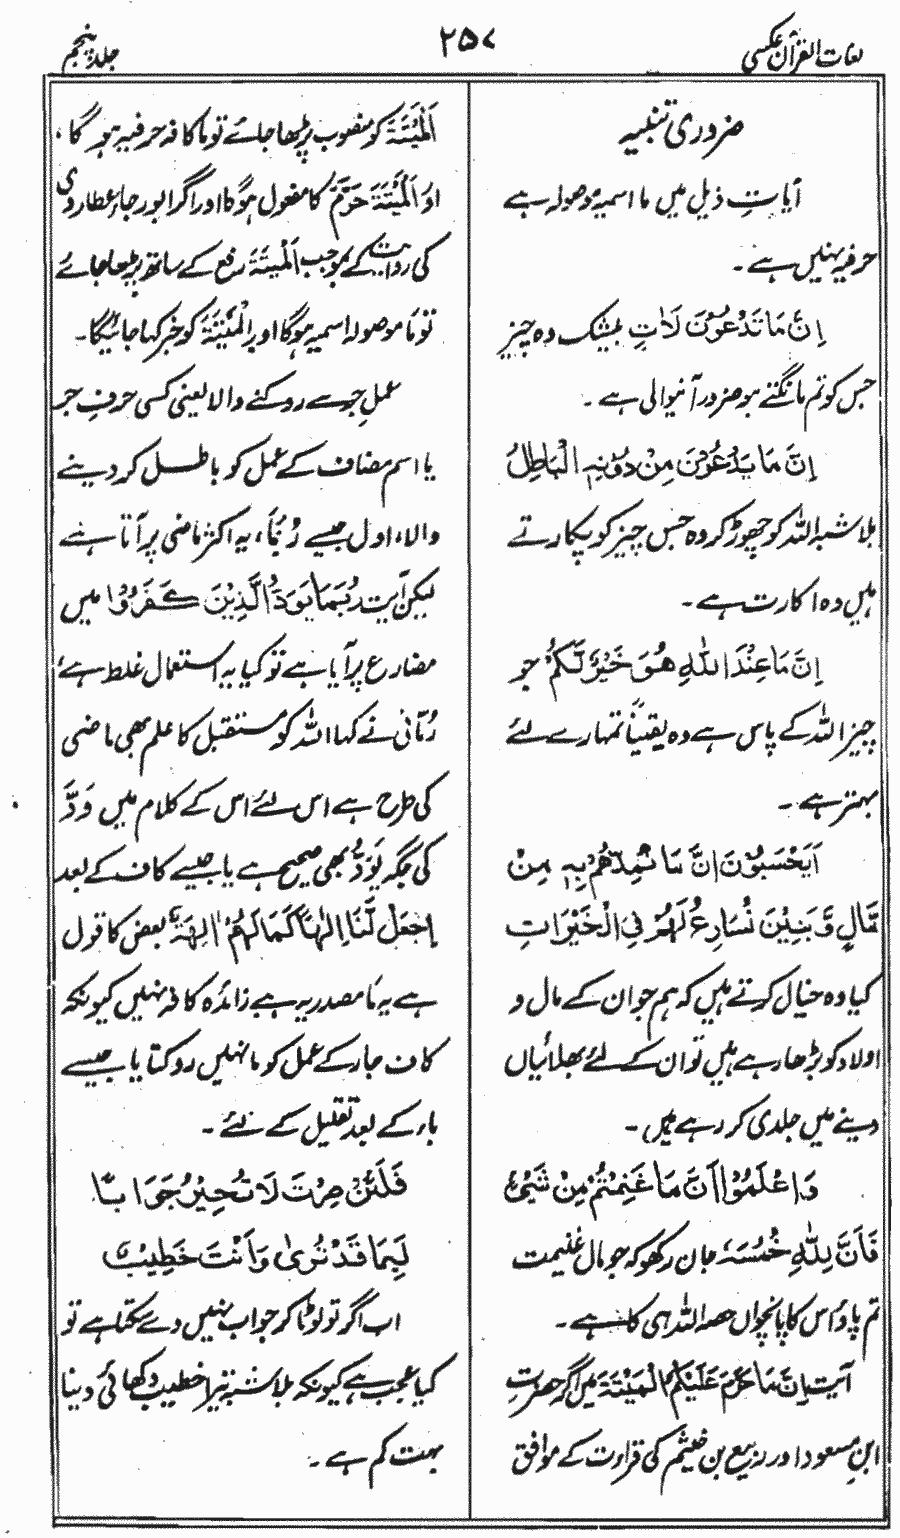 لغات القرآن عکسی
۲۵۷
جلد پنجم
ضروری تنبیہ
آیاتِ ذیل میں ما اسمیہ موصولہ ہے
حرفیہ نہیں ہے۔
اِنَّ مَا تَدْعُوْنَ لَاٰتٍ بیشک وہ چیز
جس کو تم مانگتے ہو ضرور آنیوالی ہے۔
اِنَّ مَا یَدْعُوْنَ مِنْ دُوْنِہٖ الْبَاطِلُ
بلاشبہ اللہ کو چھوڑ کر وہ جس چیز کو پکارتے
ہیں وہ اکارت ہے۔
اِنَّ مَا عِنْدَ اللّٰہِ ھُوَ خَیْرٌ لَّکُمْ جو
چیز اللہ کے پاس ہے وہ یقیناً تمہارے لئے
بہتر ہے۔
اَیَحْسَبُوْنَ اَنَّ مَا نُمِدُّھُمْ بِہٖ مِنْ
مَّالٍ وَّ بَنِیْنَ نُسَارِعُ لَھُمْ فِی الْخَیْرَاتِ
کیا وہ خیال کرتے ہیں کہ ہم جو ان کے مال و
اولاد کو بڑھا رہے ہیں تو ان کے لئے بھلائیاں
دینے میں جلدی کر رہے ہیں۔
وَاعْلَمُوْا اَنَّ مَا غَنِمْتُمْ مِنْ شَیْءٍ
فَاَنَّ لِلّٰہِ خُمُسَہٗ جان رکھو کہ جو مال غنیمت
تم پاؤ اس کا پانچواں حصہ اللہ ہی کا ہے۔
آیت اِنَّ مَا حَرَّمَ عَلَیْکُمُ الْمَیْتَۃَ میں اگر حضرت
ابنِ مسعود اور ربیع بن خیثم کی قراءت کے موافق
اَلْمَیْتَۃَ کو منصوب پڑھا جائے تو ما کافہ حرفیہ ہو گا،
اور اَلْمَیْتَۃَ حَرَّمَ کا مفعول ہو گا اور اگر ابو رجاء عطاردی
کی روایت کے بموجب اَلْمَیْتَۃُ رفع کے ساتھ پڑھا جائے
تو مَا موصولہ اسمیہ ہو گا اور اَلْمَیْتَۃُ کو خبر کہا جائیگا۔
عملِ جر سے روکنے والا یعنی کسی حرفِ جر
یا اسم مضاف کے عمل کو باطل کر دینے
والا، اول جیسے رُبَّمَا، یہ اکثر ماضی پر آتا ہے
لیکن آیت رُبَمَا یَوَدُّ الَّذِیْنَ کَفَرُوْا میں
مضارع پر آیا ہے تو کیا یہ استعمال غلط ہے؟
رُمّانی نے کہا اللہ کو مستقبل کا علم بھی ماضی
کی طرح ہے اس لئے اس کے کلام میں وَدَّ
کی جگہ یَوَدُّ بھی صحیح ہے یا جیسے کاف کے بعد
اِجْعَلْ لَّنَا اِلٰہًا کَمَا لَہُمْ اٰلِہَۃٌ بعض کا قول
ہے یہ مَا مصدریہ ہے زائدہ کافہ نہیں کیونکہ
کاف جار کے عمل کو ما نہیں روکتا یا جیسے
باء کے بعد تقلیل کے لئے۔
فَلَئِنْ صِرْتَ لَا تُحِیْرُ جَوَابًا
لَبِمَا قَدْ تُرٰی وَاَنْتَ خَطِیْبٌ
اب اگر تو لوٹا کر جواب نہیں دے سکتا ہے تو
کیا عجب ہے کیونکہ بلاشبہ تیرا خطیب دکھائی دینا
بہت کم ہے۔